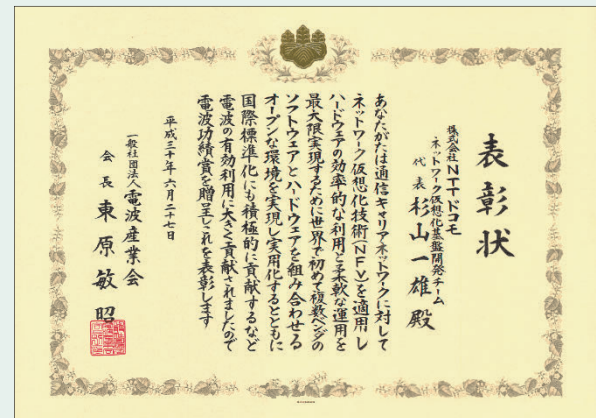 表彰状
株式会社NTTドコモ
ネットワーク仮想化基盤開発チーム
代表 杉山一雄 殿
あなたがたは通信キャリアネットワークに対して
ネットワーク仮想化技術(NFV)を適用し
ハードウェアの効率的な利用と柔軟な運用を
最大限実現するために世界で初めて複数ベンダの
ソフトウェアとハードウェアを組み合わせる
オープンな環境を実現し実用化するとともに
国際標準化にも積極的に貢献するなど
電波の有効利用に大きく貢献されましたので
電波功績賞を贈呈しこれを表彰します
平成三十年六月二十七日
一般社団法人 電波産業会
会長 東原敏昭